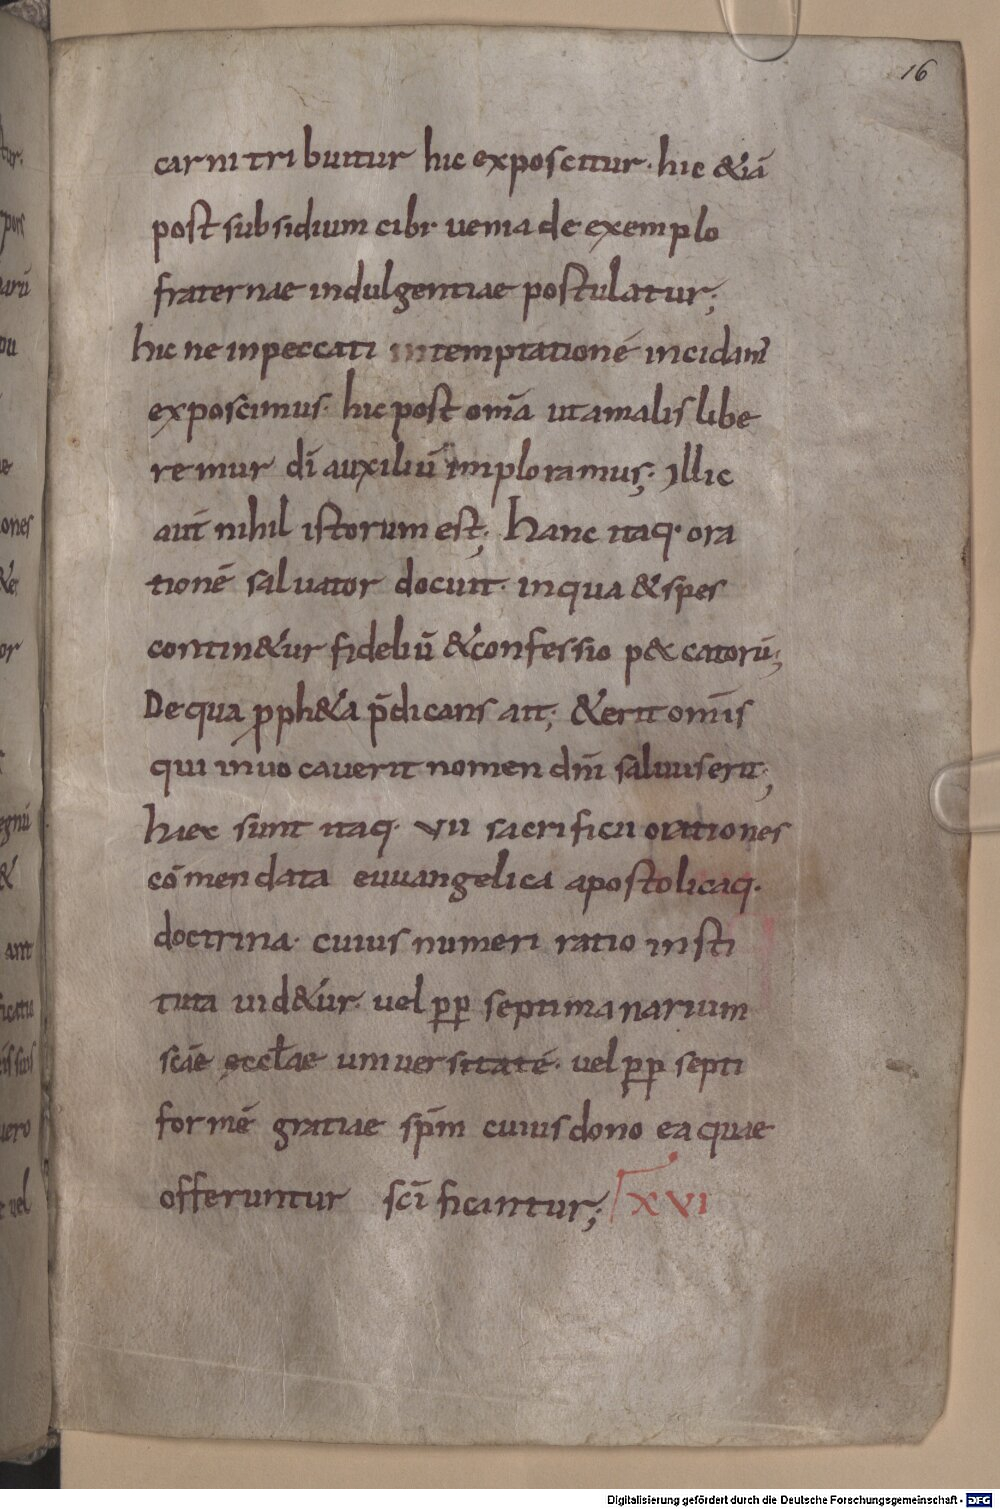 16
carni tribuitur hic exposcitur · hic &iā
post subsidium cibi uenia de exemplo
fraternae indulgentiae postulatur;
hic ne in peccati intemptationē incidam'
exposcimus · hic post om̄a ut a malis libe
remur dī auxiliū imploramus; · Illic
aut̄ nihil istorum est; Hanc itaq· ora
tionē saluator docuit · in qua & spes
contin&ur fideliū & confessio peccatorū;
De qua pph&a p̄dicans ait; & erit om̄is
qui inuocauerit nomen dn̄i saluus erit;
haec sunt itaq· VII sacrificii orationes
cōmendata euuangelica apostolicaq·
doctrina · cuius numeri ratio insti
tuta uid&ur · uel pp septimanarium
scāe ęccłae uniuersitatē · uel pp septi
formē gratiae sp̄m cuius dono ea quae
offeruntur scī ficantur; XVI
tur·
pore
arū
ones
&
or
egnū
&
ant
uero
uel
Digitalisierung gefördert durch die Deutsche Forschungsgemeinschaft - DFG